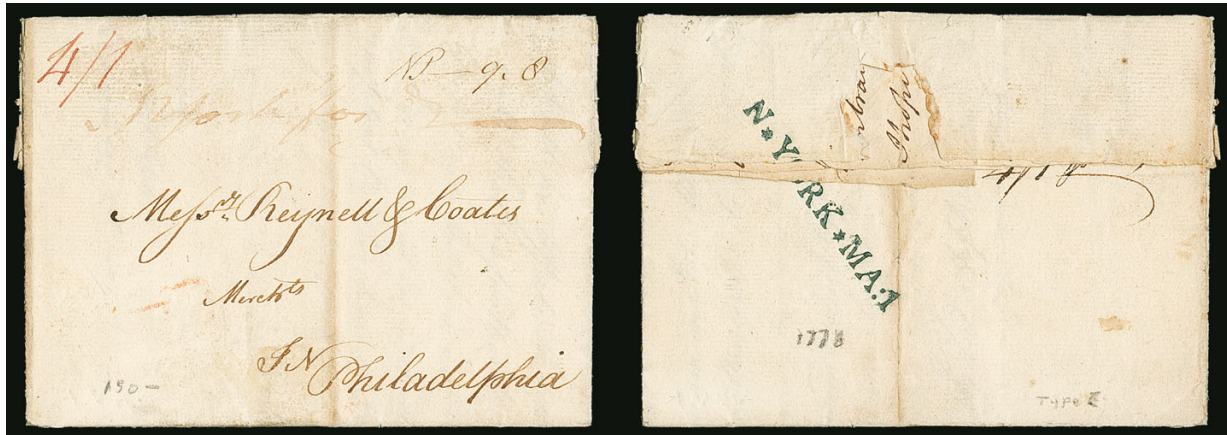 4/1
NP — 9. 8
N York for
Mess.rs Reynell & Coates
Merchts
IN Philadelphia
190 —
N★YORK★MA:1
1778
TYPE